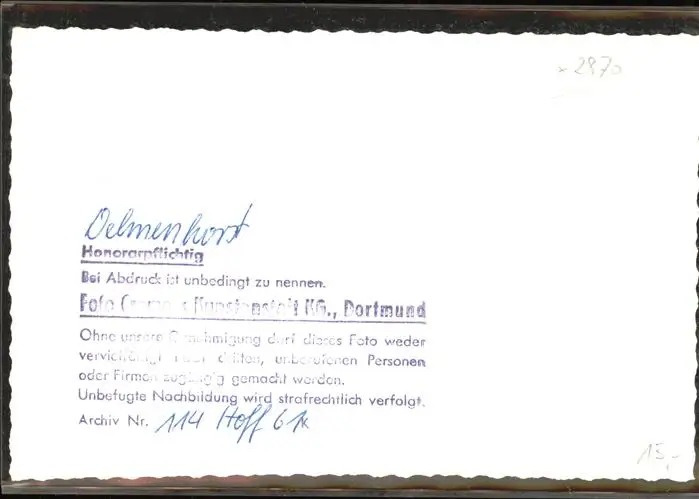 2870
Delmenhorst
Honorarpflichtig
Bei Abdruck ist unbedingt zu nennen.
Foto Kunstanstalt KG., Dortmund
Ohne unsere Genehmigung darf dieses Foto weder
dritten, unberufenen Personen
oder Firmen zugängig gemacht werden.
Unbefugte Nachbildung wird strafrechtlich verfolgt.
Archiv Nr. 114 Hoff 61
15,-